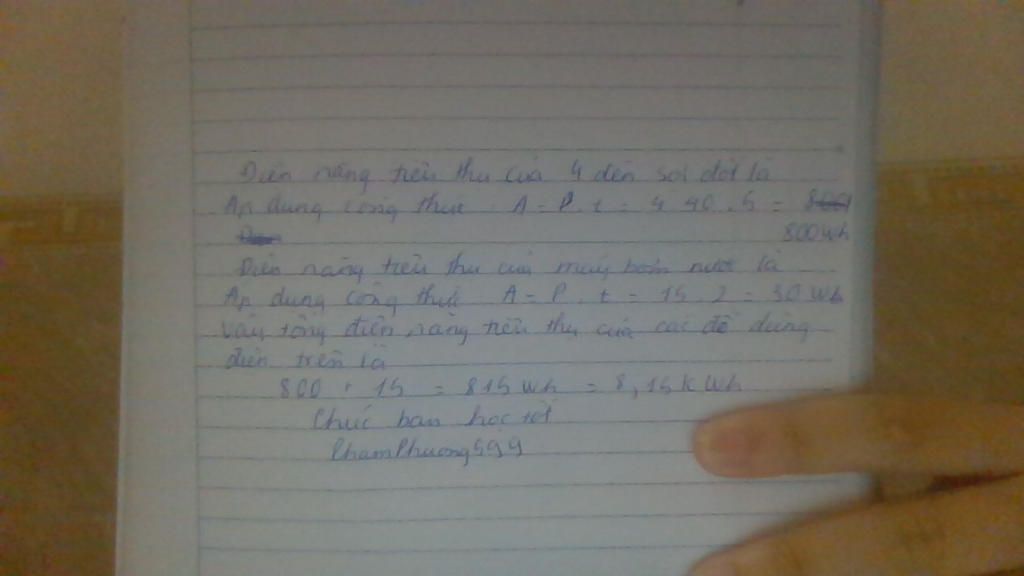 Điện năng tiêu thụ của 4 đèn sợi đốt là
Áp dụng công thức : A = P. t = 4 40 . 5 =
800wh
Điện năng tiêu thụ của máy bơm nước là
Áp dụng công thức A = P . t = 15 . 2 = 30 Wh
Vậy tổng điện năng tiêu thụ của các đồ dùng
điện trên là
800 + 15 = 815 wh = 8,15 k Wh
Chúc bạn học tốt
PhamPhuong999